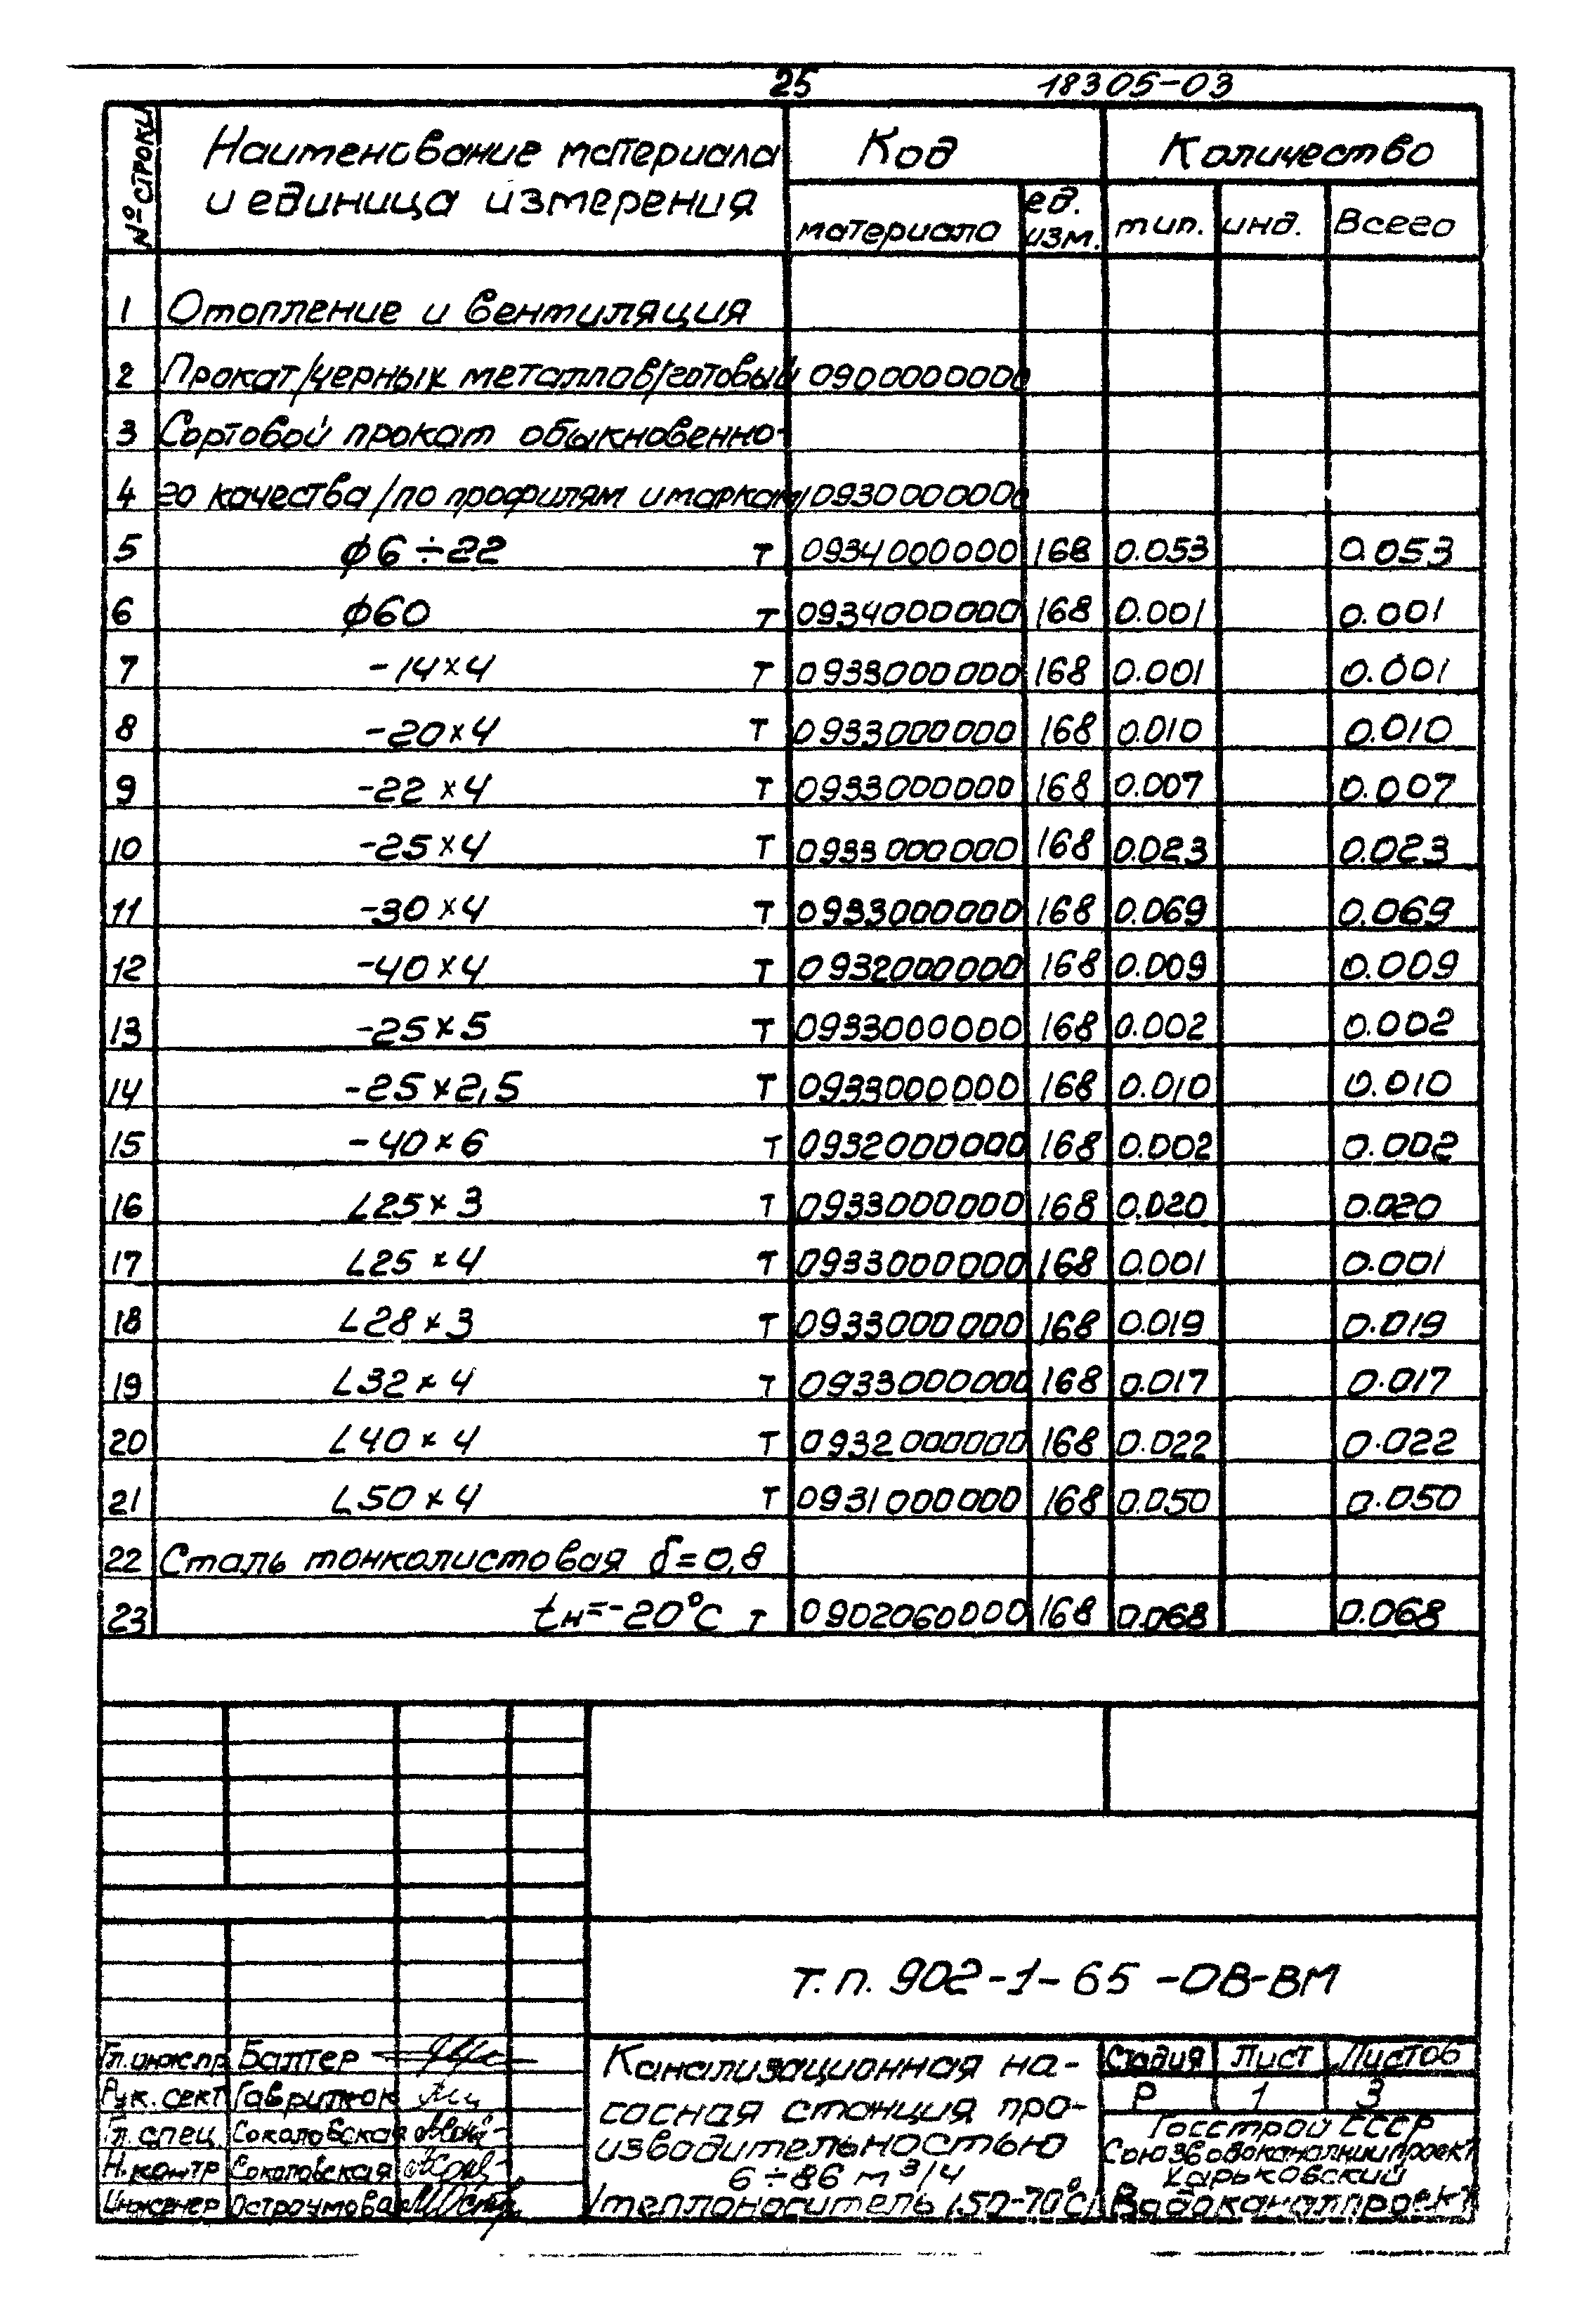 25
18305-03
№ строки
Наименование материала
и единица измерения
Код
Количество
материала
ед.
изм.
тип.
инд.
Всего
1 Отопление и вентиляция
2 Прокат/черных металлов/готовый 0900000000
3 Сортовой прокат обыкновенно-
4 го качества/по профилям и маркам/ 0930000000
5 ϕ6÷22 т 0934000000 168 0.053 0.053
6 ϕ60 т 0934000000 168 0.001 0.001
7 -14×4 т 0933000000 168 0.001 0.001
8 -20×4 т 0933000000 168 0.010 0.010
9 -22×4 т 0933000000 168 0.007 0.007
10 -25×4 т 0933000000 168 0.023 0.023
11 -30×4 т 0933000000 168 0.069 0.069
12 -40×4 т 0932000000 168 0.009 0.009
13 -25×5 т 0933000000 168 0.002 0.002
14 -25×2,5 т 0933000000 168 0.010 0.010
15 -40×6 т 0932000000 168 0.002 0.002
16 L25×3 т 0933000000 168 0.020 0.020
17 L25×4 т 0933000000 168 0.001 0.001
18 L28×3 т 0933000000 168 0.019 0.019
19 L32×4 т 0933000000 168 0.017 0.017
20 L40×4 т 0932000000 168 0.022 0.022
21 L50×4 т 0931000000 168 0.050 0.050
22 Сталь тонколистовая δ=0,8
23 tн=-20°С т 0902060000 168 0.068 0.068
т.п. 902-1-65-ОВ-ВМ
Гл.инж.пр. Балтер
Рук.сект Гаврилюк
Гл.спец. Соколовская
Н.контр Соколовская
Инженер Остроумова
Канализационная на-
сосная станция про-
изводительностью
6÷86 м³/ч
/теплоноситель 150-70°С/
Стадия Лист Листов
Р 1 3
Госстрой СССР
Союзводоканалниипроект
Харьковский
Водоканалпроект